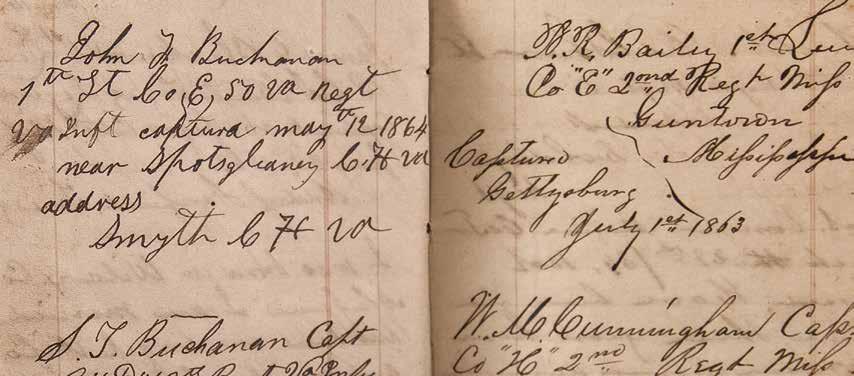 John F Buchanan
1th Lt Co E, 50 va Regt
va Inft captura may 12th 1864
near Spotsgleaney C. H va
address
Smyth C H va
S. T. Buchanan Capt
W. R. Bailey 1est
Co "E" 2nd Regt Miss
Guntown
Mississeppi
Captured
Gettysburg
July 1est 1863
W. M. Cunningham Capt
Co "H" 2nd Regt Miss